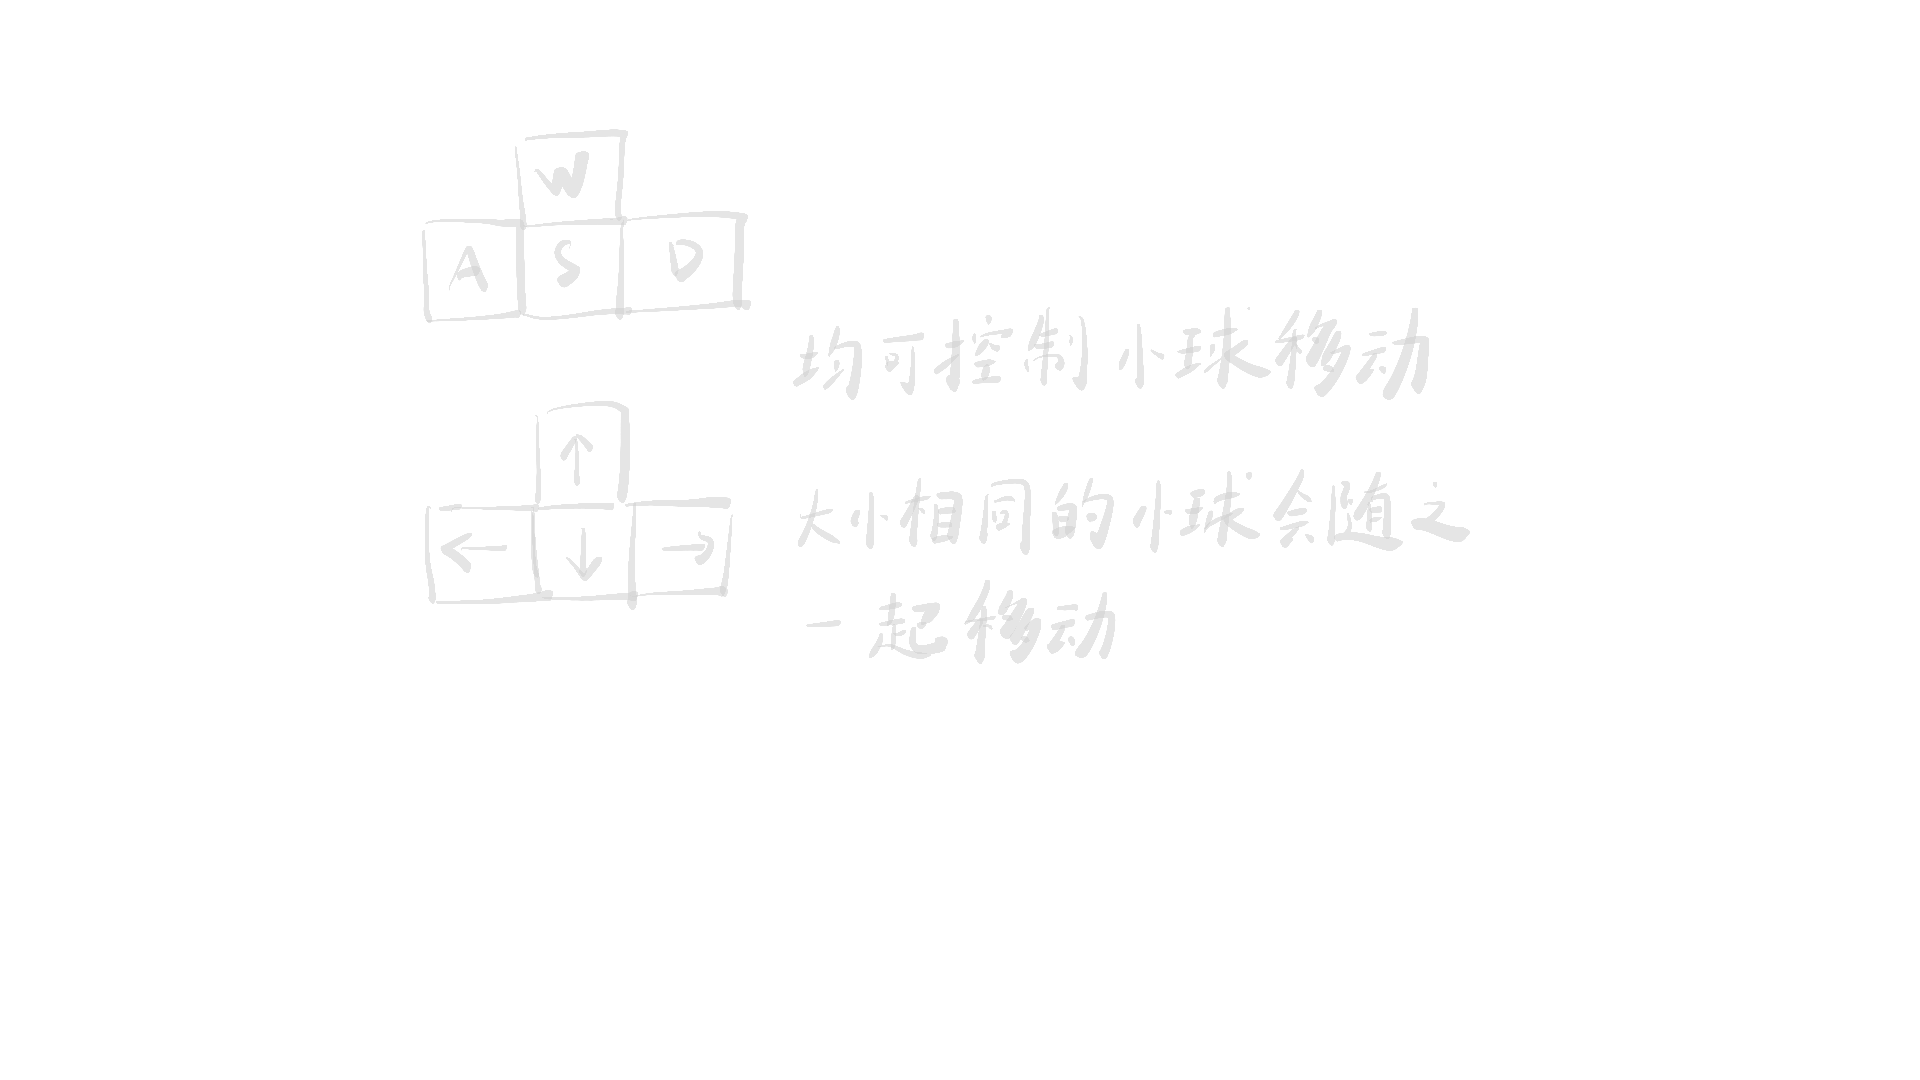 W
A S D
均可控制小球移动
↑
← ↓ →
大小相同的小球会随之
一起移动